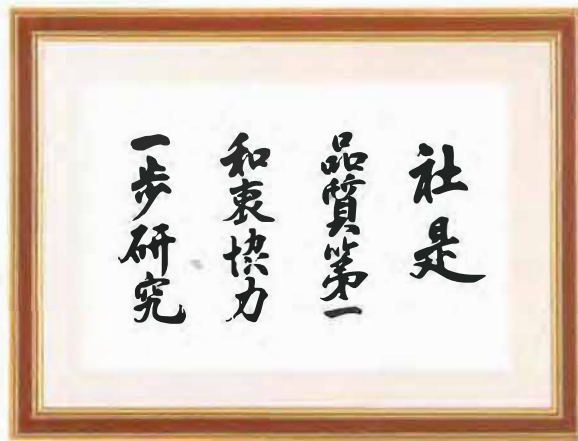 社是
品質第一
和衷協力
一歩研究